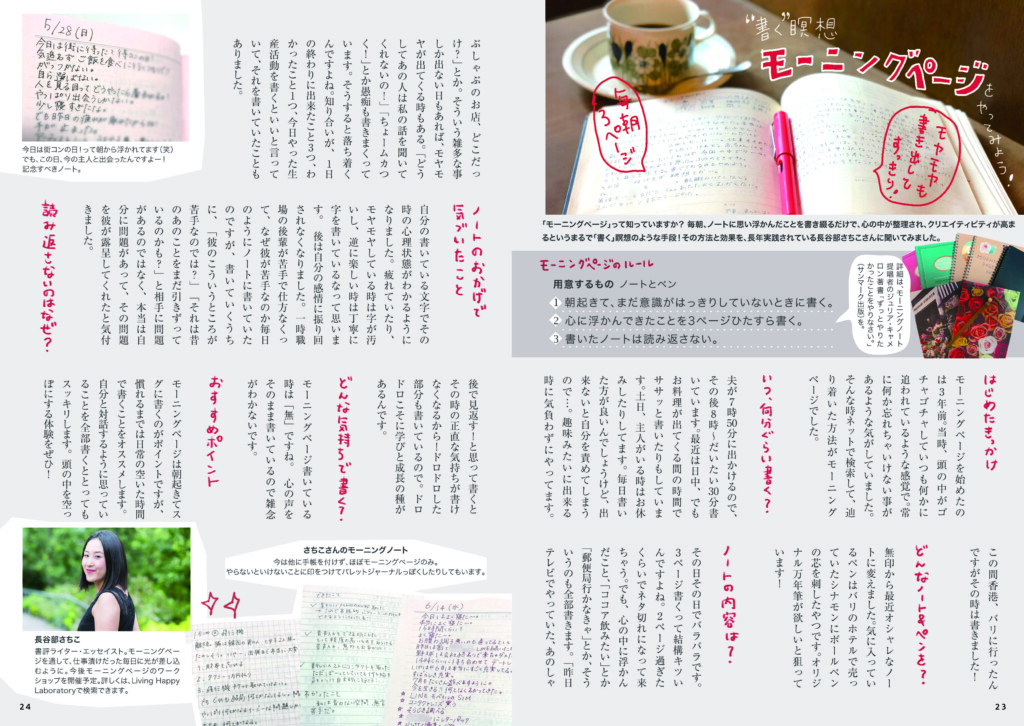 "書く"瞑想
モーニングページ
をやってみよう！
毎朝
3ページ
モヤモヤも
書き出して
すっきり。
「モーニングページ」って知っていますか？ 毎朝、ノートに思い浮かんだことを書き綴るだけで、心の中が整理され、クリエイティビティが高ま
るというまるで「書く」瞑想のような手段！その方法と効果を、長年実践されている長谷部さちこさんに聞いてみました。
モーニングページのルール
用意するもの ノートとペン
① 朝起きて、まだ意識がはっきりしていないときに書く。
② 心に浮かんできたことを3ページひたすら書く。
③ 書いたノートは読み返さない。
詳細は、モーニングノート
提唱者のジュリア・キャメ
ロン著書『ずっとやりた
かったことをやりなさい。』
（サンマーク出版）を。
はじめたきっかけ
モーニングページを始めたの
は３年前。当時、頭の中がゴ
チャゴチャしていつも何かに
追われているような感覚で。常
に何か忘れちゃいけない事が
あるような気がしていました。
そんな時ネットで検索して、辿
り着いた方法がモーニング
ページでした。
いつ、何分ぐらい書く？
夫が７時50分に出かけるので、
その後８時〜だいたい30分書
いています。最近は日中、でも
お料理が出てくる間の時間で
ササッと書いたりもしていま
す。土日、主人がいる時はお休
みしたりしてます。毎日書い
た方が良いんでしょうけど、出
来ないと自分を責めてしまう
ので…。趣味みたいに出来る
時に気負わずにやってます。
この間香港、バリに行ったん
ですがその時は書きました！
どんなノート&ペンを？
無印から最近オシャレなノー
トに変えました。気に入ってい
るペンはバリのホテルで売っ
ていたシナモンにボールペン
の芯を刺したやつです。オリジ
ナル万年筆が欲しいと狙って
います！
ノートの内容は？
その日その日でバラバラです。
３ページ書くって結構キツい
んですよね。２ページ過ぎた
くらいでネタ切れになって来
ちゃう。でも、心の中に浮かん
だこと、「ココア飲みたい」とか
「郵便局行かなきゃ」とか、そう
いうのも全部書きます。「昨日
テレビでやっていた、あのしゃ
23
ぶしゃぶのお店、どこだっ
け？」とか。そういう雑多な事
しか出ない日もあれば、モヤモ
ヤが出てくる時もある。「どう
してあの人は私の話を聞いて
くれないの！」「ちょームカつ
く！」とか愚痴も書きまくって
います。そうすると落ち着く
んですよね。知り合いが、１日
の終わりに出来たこと３つ、わ
かったこと１つ、今日やった生
産活動を書くといいと言って
いて、それを書いていたことも
ありました。
5/28(日)
今日は街コンの日！って朝から浮かれてます（笑）
でも、この日、今の主人と出会ったんですよー！
記念すべきノート。
ノートのおかげで
気づいたこと
自分の書いている文字でその
時の心理状態がわかるように
なりました。疲れていたり、
モヤモヤしている時は字が汚
いし、逆に楽しい時は丁寧に
字を書いているなって思いま
す。 後は自分の感情に振り回
されなくなりました。一時職
場の後輩が苦手で仕方なくっ
て、なぜ彼が苦手なのか毎日
のようにノートに書いていた
のですが、書いていくうち
に、「彼のこういうところが
苦手なのでは？」「それは昔
のあのことをまだ引きずって
いるのかも？」と相手に問題
があるのではなく、本当は自
分に問題があって、その問題
を彼が露呈してくれたと気付
きました。
読み返さないのはなぜ？
後で見返す！と思って書くと
その時の正直な気持ちが書け
なくなるから！ドロドロした
部分も書いているので。ドロ
ドロこそに学びと成長の種が
あるんです。
どんな気持ちで書く？
モーニングページ書いている
時は「無」ですね。 心の声を
そのまま書いているので雑念
がわかないです。
おすすめポイント
モーニングページは朝起きてス
グに書くのがポイントですが、
慣れるまでは日常の空いた時間
で書くことをオススメします。
自分と対話するように思ってい
ることを全部書くととっても
スッキリします。頭の中を空っ
ぽにする体験をぜひ！
さちこさんのモーニングノート
今は他に手帳を付けず、ほぼモーニングページのみ。
やらないといけないことに印をつけてバレットジャーナルっぽくしたりしてもいます。
長谷部さちこ
書評ライター・エッセイスト。モーニングペー
ジを通して、仕事漬けだった毎日に光が差し込
むように。今後モーニングページのワーク
ショップを開催予定。詳しくは、Living Happy
Laboratoryで検索できます。
24